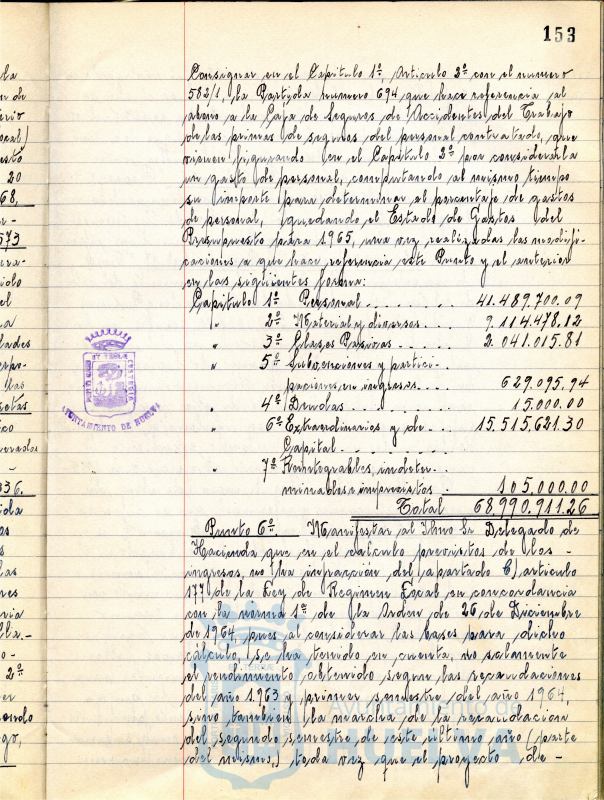 153
Consignar en el Capitulo 1º, Articulo 2º con el numero
582/1, la Partida numero 694, que hace referencia al
abono a la Caja de Seguros de Accidentes del Trabajo
de las primas de seguros del personal contratado, que
vienen figurando en el Capitulo 2º por considerarla
un gasto de personal, computando al mismo tiempo
su importe para determinar el porcentaje de gastos
de personal, quedando el Estado de Gastos del
Presupuesto para 1965, una vez realizadas las modifi-
caciones a que hace referencia este Punto y el anterior
en las siguientes forma:
Capitulo 1º Personal . . . . . . . 41.489.700.09
" 2º Material y diversos . . . 9.114.478.12
" 3º Clases Pasivas . . . . . 2.041.015.81
" 5º Subvenciones y partici-
paciones en ingresos . . . 629.095.94
" 4º Deudas . . . . . . . . 15.000.00
" 6º Extraordinarios y de . . . 15.515.621.30
Capital . . . . .
" 7º Reintegrables, indeter-
minados e imprevistos . 105.000.00
Total 68.990.911.26
Punto 6º Manifestar al Ilmo Sr Delegado de
Hacienda que en el calculo previstos de los -
ingresos, no ha infracción del apartado C) articulo
177 de la Ley de Regimen Local en concordancia
con la norma 1ª de la Orden de 26 de Diciembre
de 1964, pues al considerar las bases para dicho
cálculo, se ha tenido en cuenta, no solamente
el rendimiento obtenido segun las recaudaciones
del año 1.963 y primer semestre del año 1964,
sino tambien la marcha de la recaudacion
del segundo semestre de este ultimo año (parte
del mismo,) toda vez que el proyecto de -
AYUNTAMIENTO DE HUELVA
Ayuntamiento de
HUELVA
la
n de
ocal)
esto
20
68.
573
era-
el
a
lades
las
ico
336.
las
nes
2º